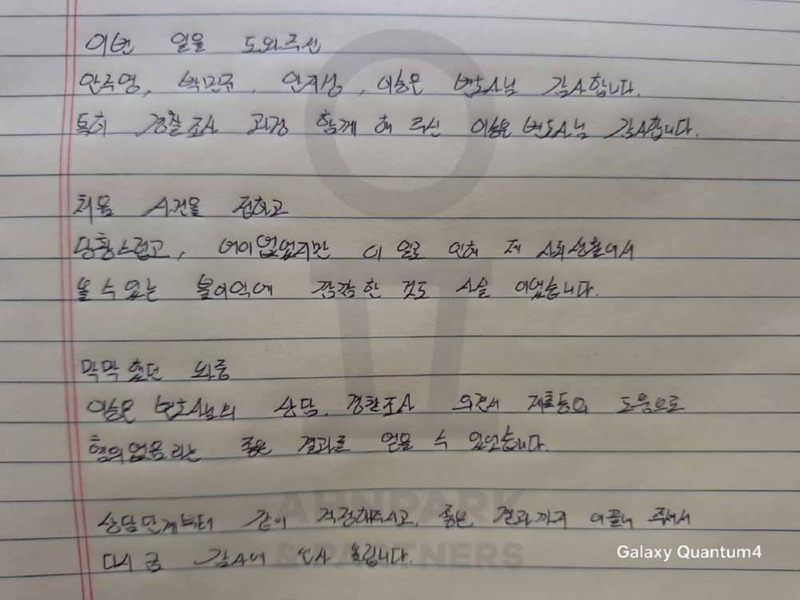 이번 일을 도와주신
안주영, 박민규, 안지성, 이승은 변호사님 감사합니다.
특히 경찰조사 과정 함께 해 주신 이승은 변호사님 감사합니다.
처음 사건을 접하고
당황스럽고, 어이없었지만 이 일로 인해 제 사회생활에서
올 수 있는 불이익에 깜깜한 것도 사실 이었습니다.
막막했던 와중
이승은 변호사님의 상담, 경찰조사 의견서 제출등의 도움으로
혐의없음 라는 좋은 결과를 얻을 수 있었습니다.
상담단계부터 같이 걱정해주시고, 좋은 결과까지 이끌어 주셔서
다시 금 감사에 인사 올립니다.
AHNPARK
& PARTNERS
Galaxy Quantum4